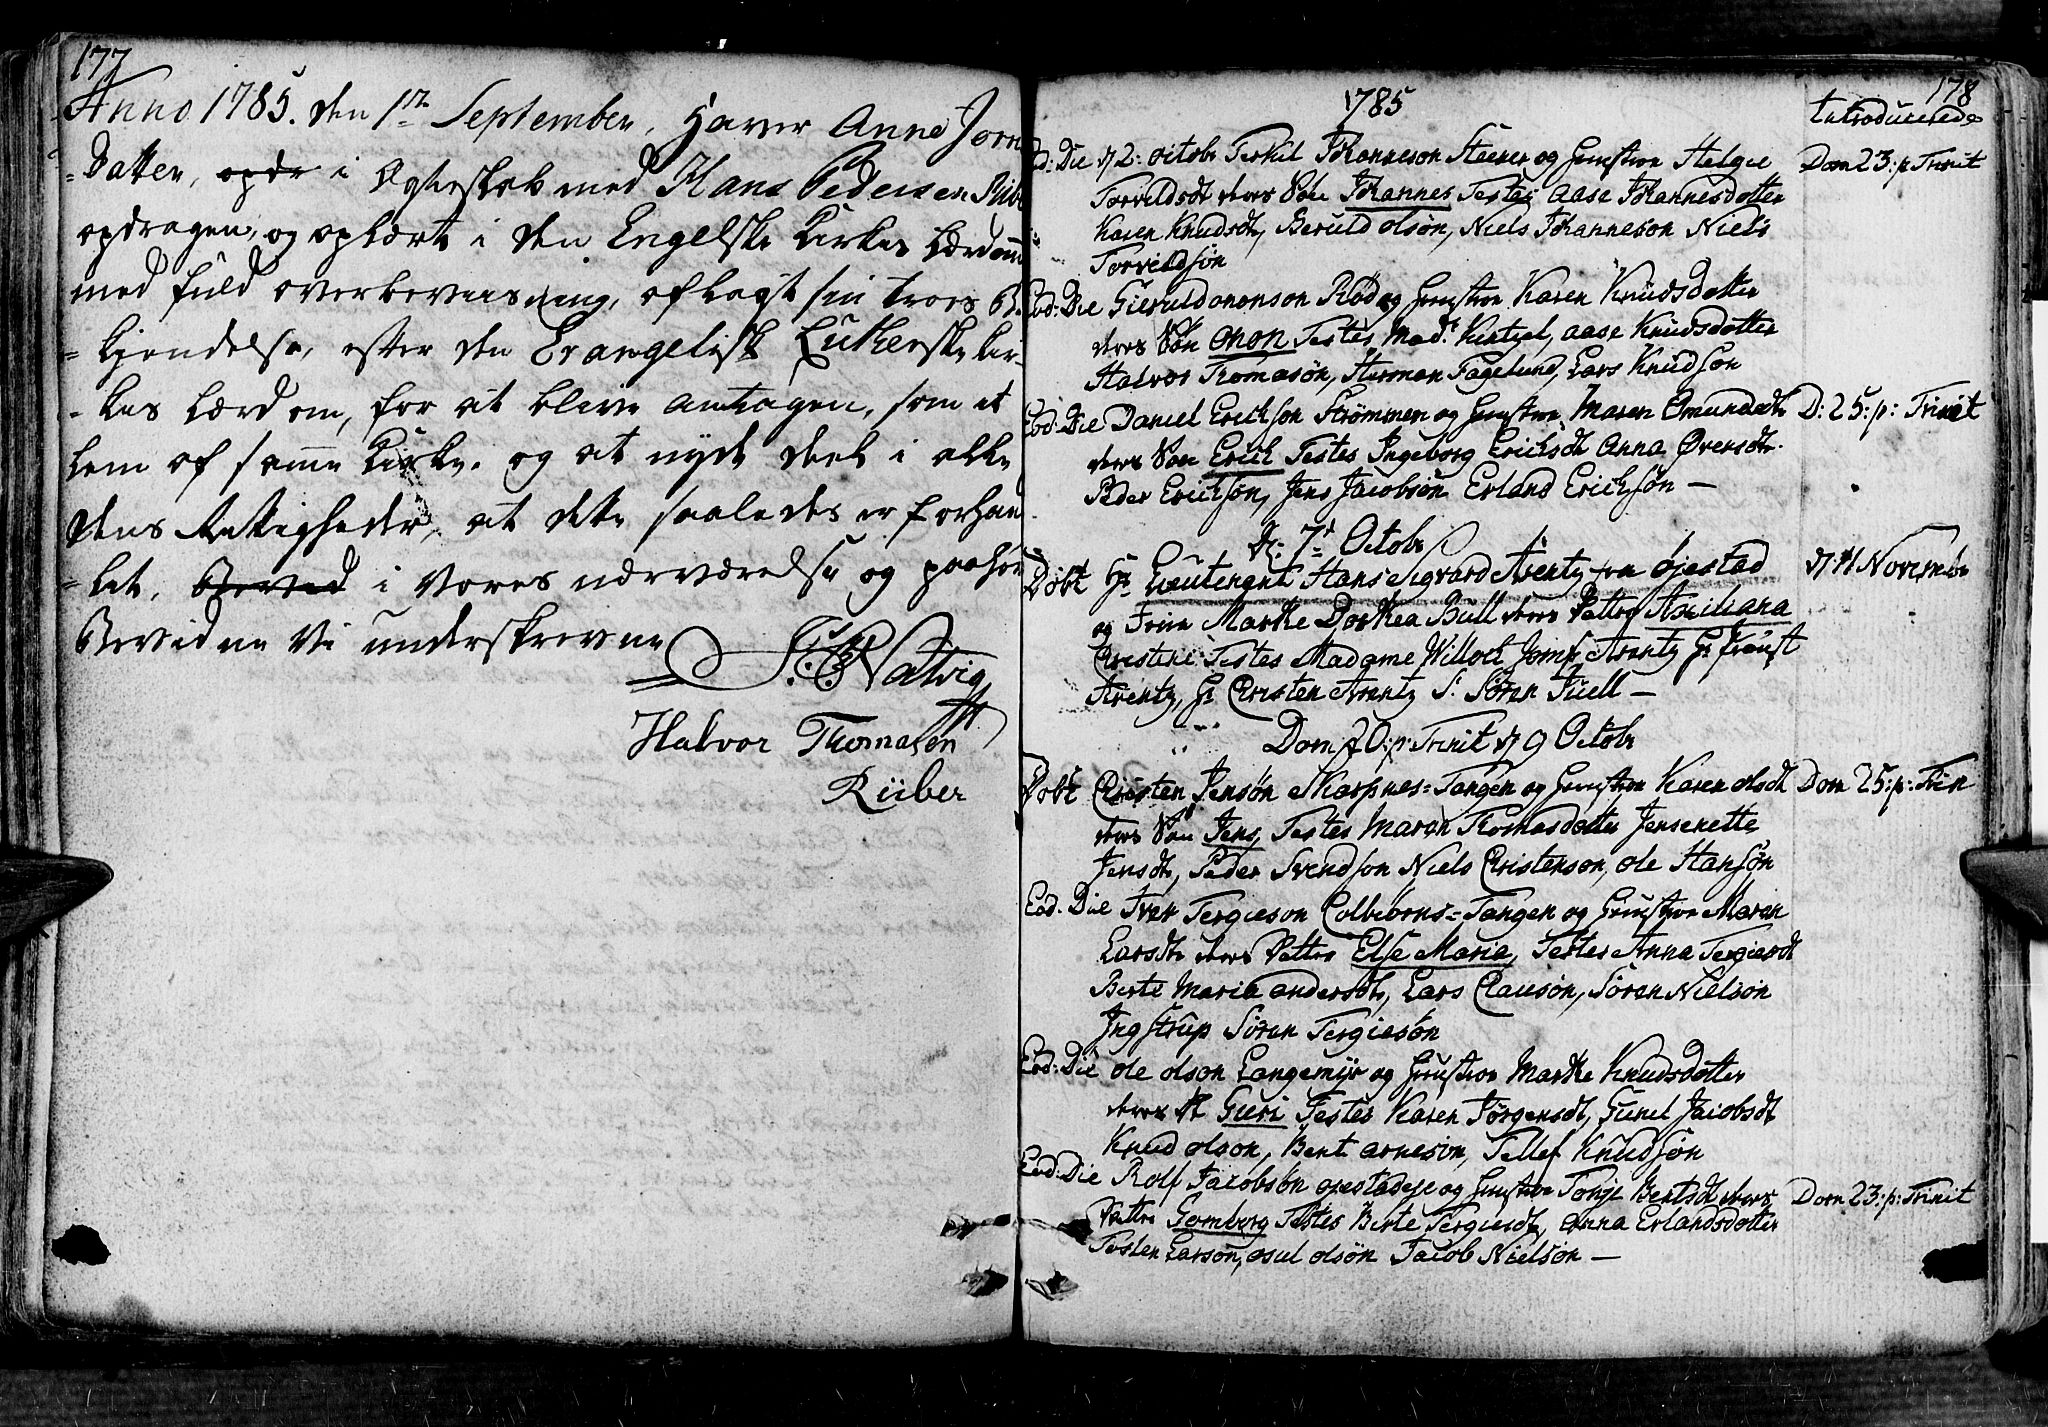 177
Anno 1785. den 1te September, Haver Anne Jorns
-Datter, opdr i Egteskab med Hans Pedersen Riib
opdragen, og oplært i den Engelske Kirkes Lærdom
med fuld overbeviisning, aflagt sin troes Be-
-kjendelse, efter den Evangelisk Lutherske kir-
-kes Lærdom, for at blive antagen, som et
Lem af samme Kirke. og at nyde deel i alle
dens Rettigheder, at dette saaledes er forhan
-let, i vores nærværelse og paahør
Bevidne vi underskrevne
Natvig
Halvor Thomasen
Riiber
178
1785
Introducerede
Eod: Die d 2: octobr Terkil Johanneson Steener og Hustroe Helge Dom 23: p: Trinit
Torvildsdt deres Søn Johannes Testes Aase Johannesdotter
Karen Knudsdt, Beruld olsøn, Niels Johanneson Niels
Torvildsøn
Eod: Die Gieruld ononson Rød og Hustroe Karen Knudsdotter
deres Søn Onon Testes Mad. Hentzel, Aase Knudsdotter
Halvor Thomasøn, Herman Fagelund, Lars Knudsøn
Eod: Die Daniel Ericksøn Strømmen og Hustroe Maren Omundsdt D: 25: p: Trinit
deres Søn Erich Testes Ingeborg Ericksdt Anna Øversdtr
Peder Ericksøn, Jens Jacobsøn Erland Ericksøn —
D: 7de Octobr
Døbt Hr Lieutenant Hans Sigvard Arentz fra Øjestad d 11 November
og Fruen Marthe Dorthea Bull deres Datter Amiliana
Christine Testes Madame Willoch Jomfr Arentz Hr Provst
Arentz, Hr Christen Arentz S: Søren Juell —
Dom 20: p: Trinit d 9 Octobr
Døbt Christen Jensøn Skarpnes=Tangen og Hustroe Karen olsdt Dom 25: p: Trin
deres Søn Jens, Testes Maren Thomasdotter Jensenette
Jensdt, Peder Svendson Niels Christenson, ole Hansøn
Eod. Die Iver Tergieson Colbiørns=Tangen og Hustroe Maren
Larsdt deres Datter Else Maria, Testes Anna Tergiesdt
Birte Maria Andersdt, Lars Clausøn, Søren Nielsøn
Ingstrup Søren Tergiesøn
Eod: Die ole olson Langemyr og Hustroe Marthe Knudsdotter
deres Dt Guri Testes Karen Jørgensdt, Gunel Jacobsdt
Knud olson, Bent arneson, Tellef Knudsøn
Eod: Die Rolf Jacobsøn Øjestadeje og Hustroe Tonje Bentsdt deres Dom 23: p: Trinit
Datter Gomborg Testes Birte Tergiesdt, Anna Erlandsdotter
Tosten Larson, osul olsøn Jacob Nielsøn —